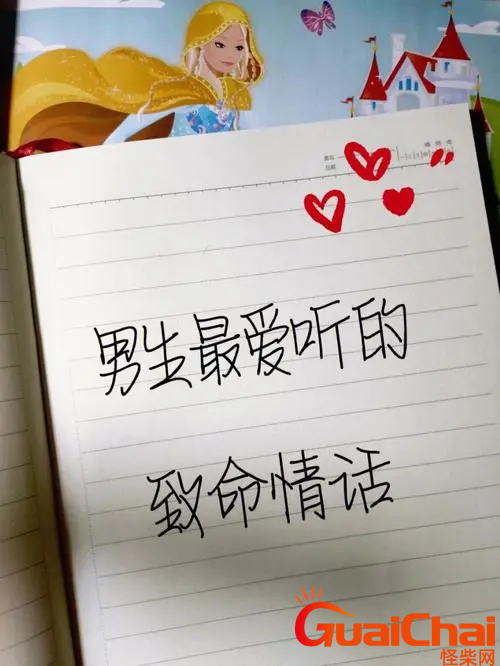 男生最爱听的
致命情话
GuaiChai
怪柴网